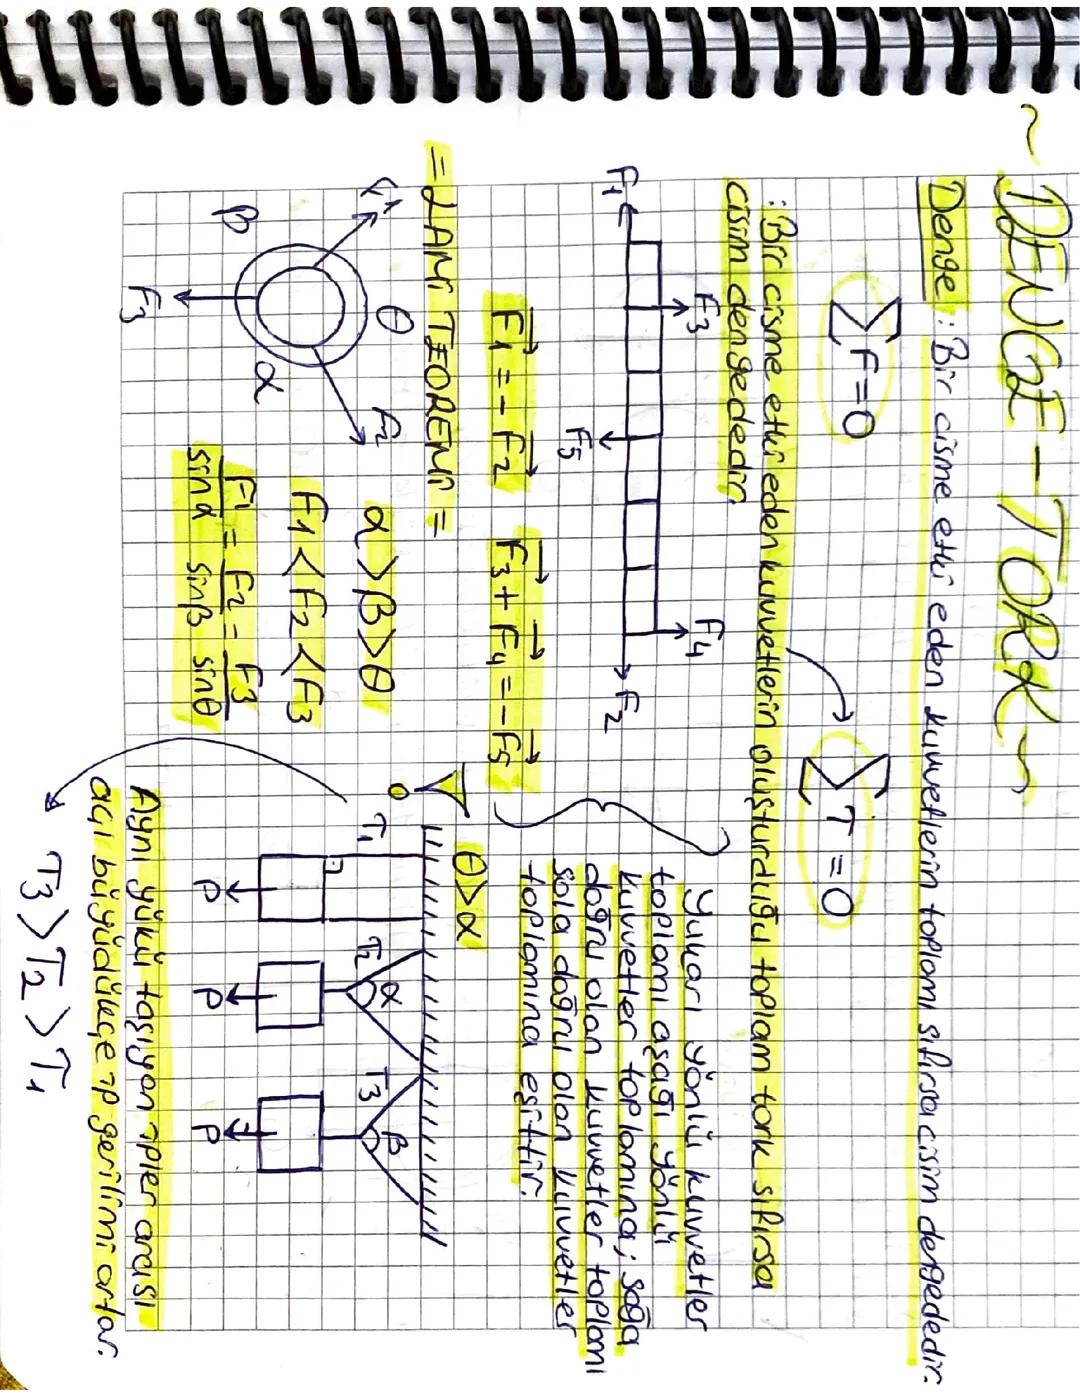 ~ DENGE - TORK ~
Denge : Bir cisme etki eden kuvvetlerin toplamı sıfırsa cisim dengededir.
∑F=0
∑T=0
: Bir cisme etki eden kuvvetlerin oluşturduğu toplam tork sıfırsa
cisim dengededir.
F1 F3 F5 F4 F2
F1 = - F2 F3 + F4 = -F5
Yukarı yönlü kuvvetler
toplamı aşağı yönlü
kuvvetler toplamına; sağa
doğru olan kuvvetler toplamı
sola doğru olan kuvvetler
toplamına eşittir.
= LAMİ TEOREMİ =
F1 θ F2
β α
F3
α>β>θ
F1<F2<F3
F1/sinα = F2/sinβ = F3/sinθ
θ>α
0 T1 T2 α T3 β
P P P
Aynı yükü taşıyan ipler arası
açı büyüdükçe ip gerilimi artar.
T3 > T2 > T1